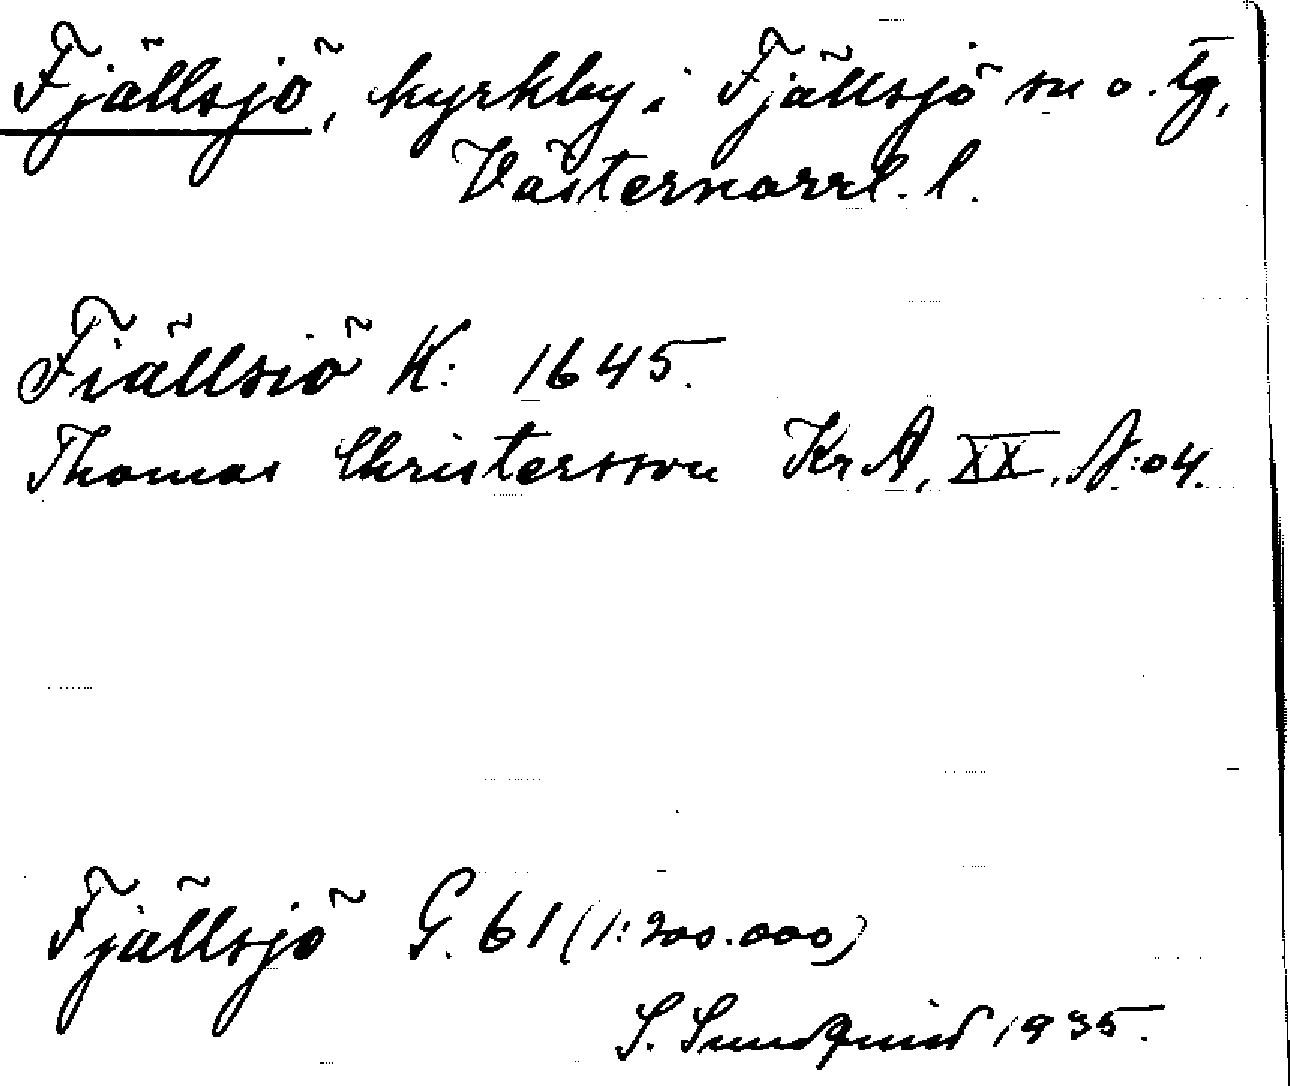 Fjällsjö, kyrkby i Fjällsjö sn o. tg,
Västernorrl. l.
Fiällsiö K: 1645.
Thomas Christersson Kr A, XX, A:04.
Fjällsjö G. 61 (1:200.000)
S. Sundqvist 1935.